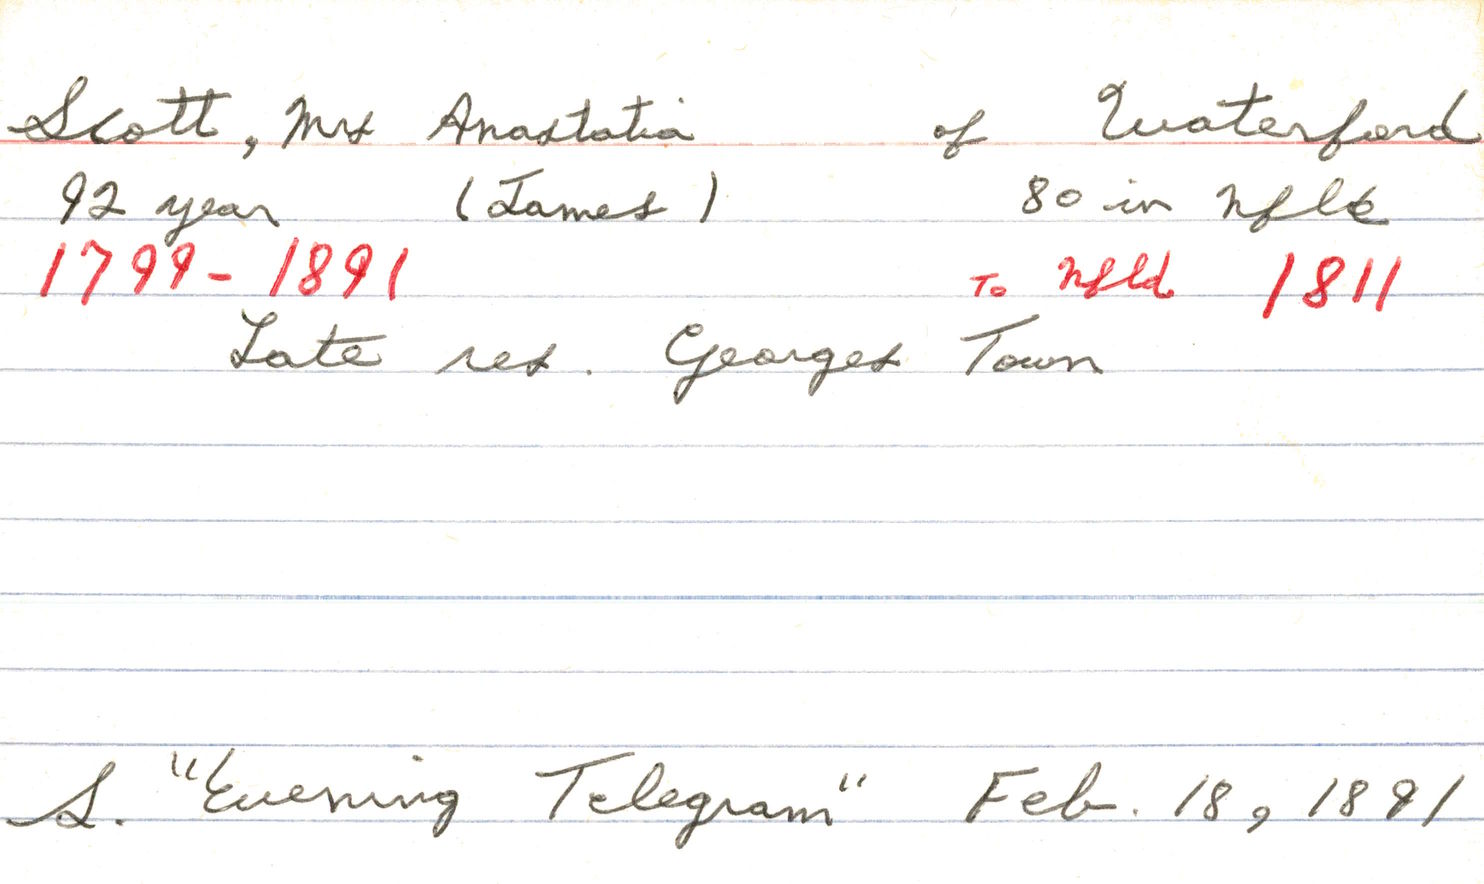 Scott, Mrs Anastatia of Waterford
92 year (James) 80 in Nfld
1799-1891 To Nfld 1811
Late res. Georges Town
S. "Evening Telegram" Feb. 18, 1891